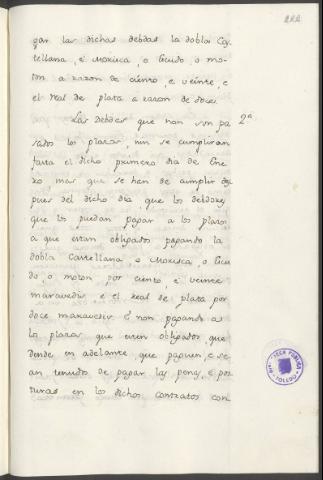 222
gar las dichas debdas la dobla Cas-
tellana, é Morisca, o Escudo, o mo-
ton a razon de ciento, e veinte, e
e el real de plata a razon de doce
Las Debdas que non son pa- 2ª
sados los plazos, nin se cumpliran
fasta el dicho primero dia de Ene-
ro, mas que se han de cumplir des
pues del dicho dia que los debdores
que los puedan pagar a los plazos
a que estan obligados pagando la
dobla Castellana o Morisca, o Escu
do, o moton por ciento, e veinte
maravedis e el Real de plata por
doce maravedis. E non pagando a
los plazos que estan obligados, que
dende en adelante, que paguen, e se-
an tenudos de pagar las penas, e pos
turas en los dichos contratos con-
BIBLIOTECA PUBLICA
TOLEDO